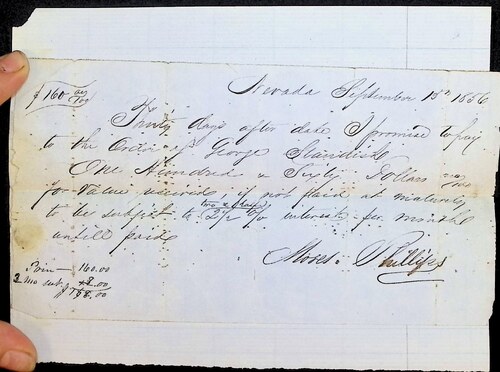 Nevada September 13th 1856
$160 00/100
Thirty days after date I promise to pay
to the Order of George Standish
One Hundred & Sixty Dollars
for value received, if not paid at maturity
two & a half
to be subject to 2 1/2 % interest per month
untill paid
Moses Phillips
160.00
2 mo 8.00
$168.00